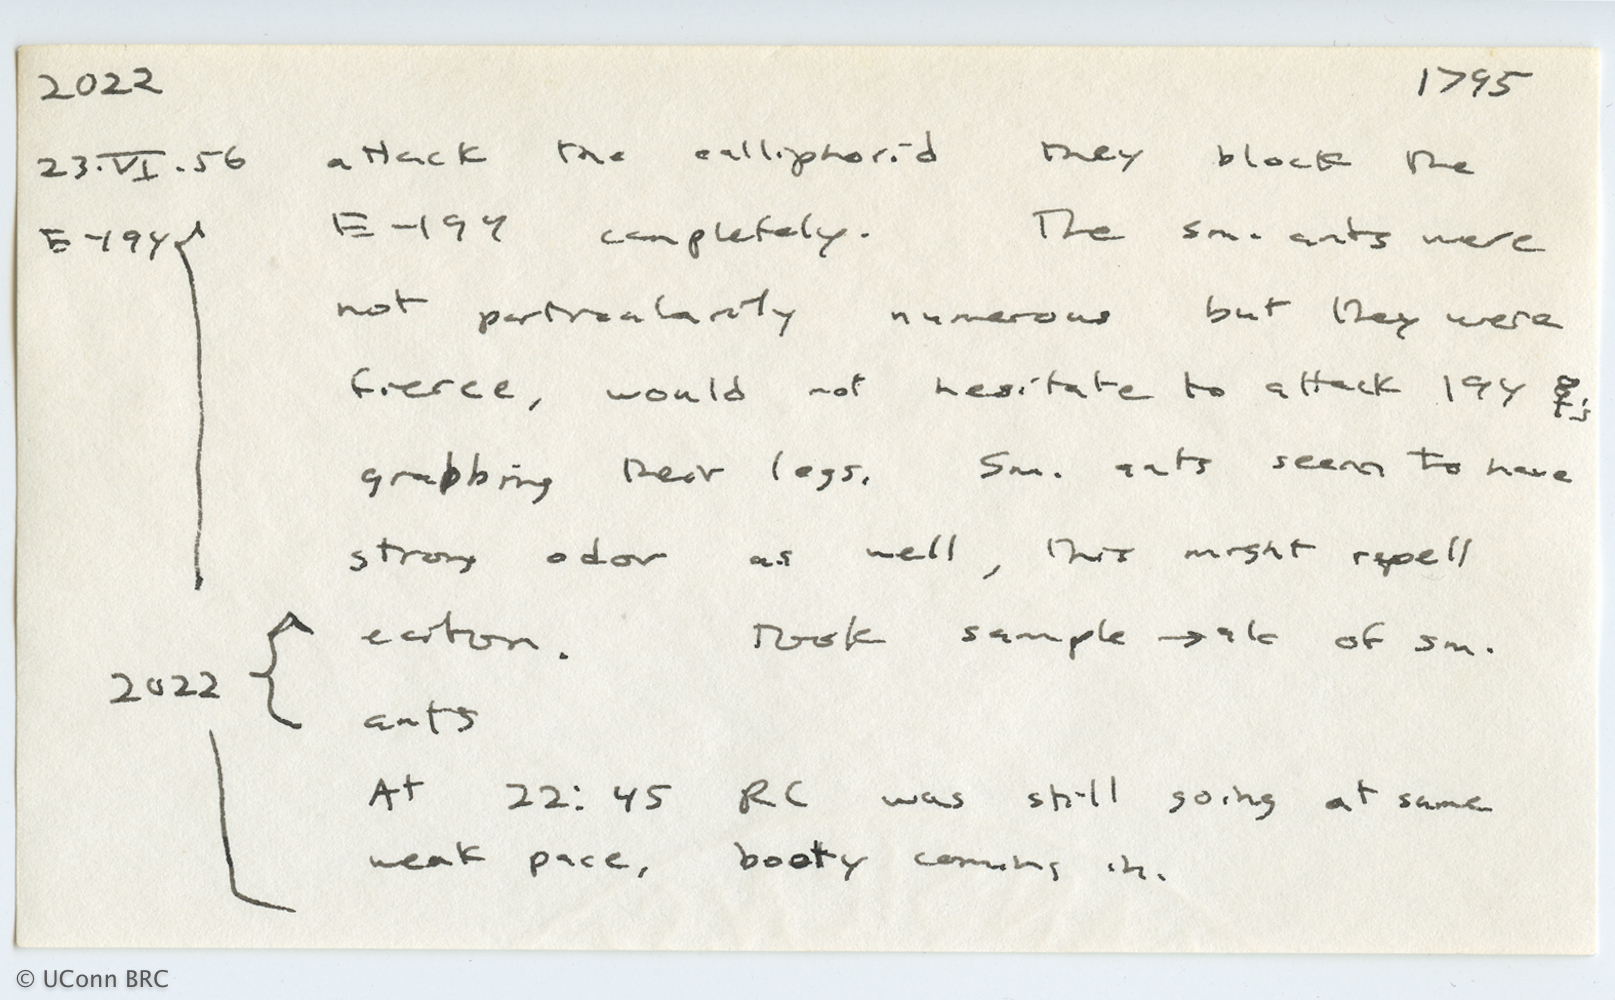 2022 1795
23.VI.56 attack the calliphorid they block the
E-194 E-194 completely. The sm. ants were
not particularily numerous but they were
fierce, would not hesitate to attack 194
grabbing their legs. Sm. ants seem to have
strong odor as well, this might repell
eciton. Took sample → alc of sm.
2022
ants
At 22:45 RC was still going at same
weak pace, booty coming in.
© UConn BRC